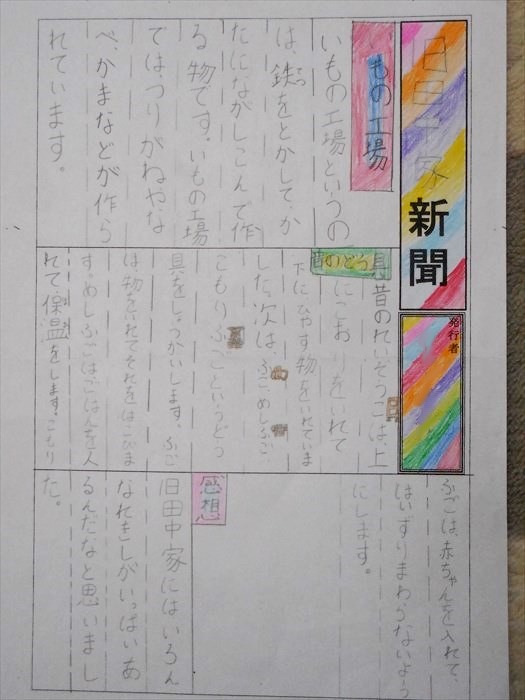 旧田中家
新聞
発行者
いもの工場
いもの工場というの
は、鉄をとかして、か
たにながしこんで作
る物です。いもの工場
ではつりがねやな
べ、かまなどが作ら
れています。
昔のどう具
昔のれいぞうこは上
にこおりをいれて
下にひやす物をいれていま
した。次は、ふご、めしふご
こもりふごというどう
具をしょうかいします。ふご
は物をいれてそれをはこびま
す。めしふごはごはんを入
れて、保温をします。こもり
ふごは、赤ちゃんを入れて、
はいずりまわらないよう
にします。
感想
旧田中家にはいろん
なれきしがいっぱいあ
るんだなと思いまし
た。